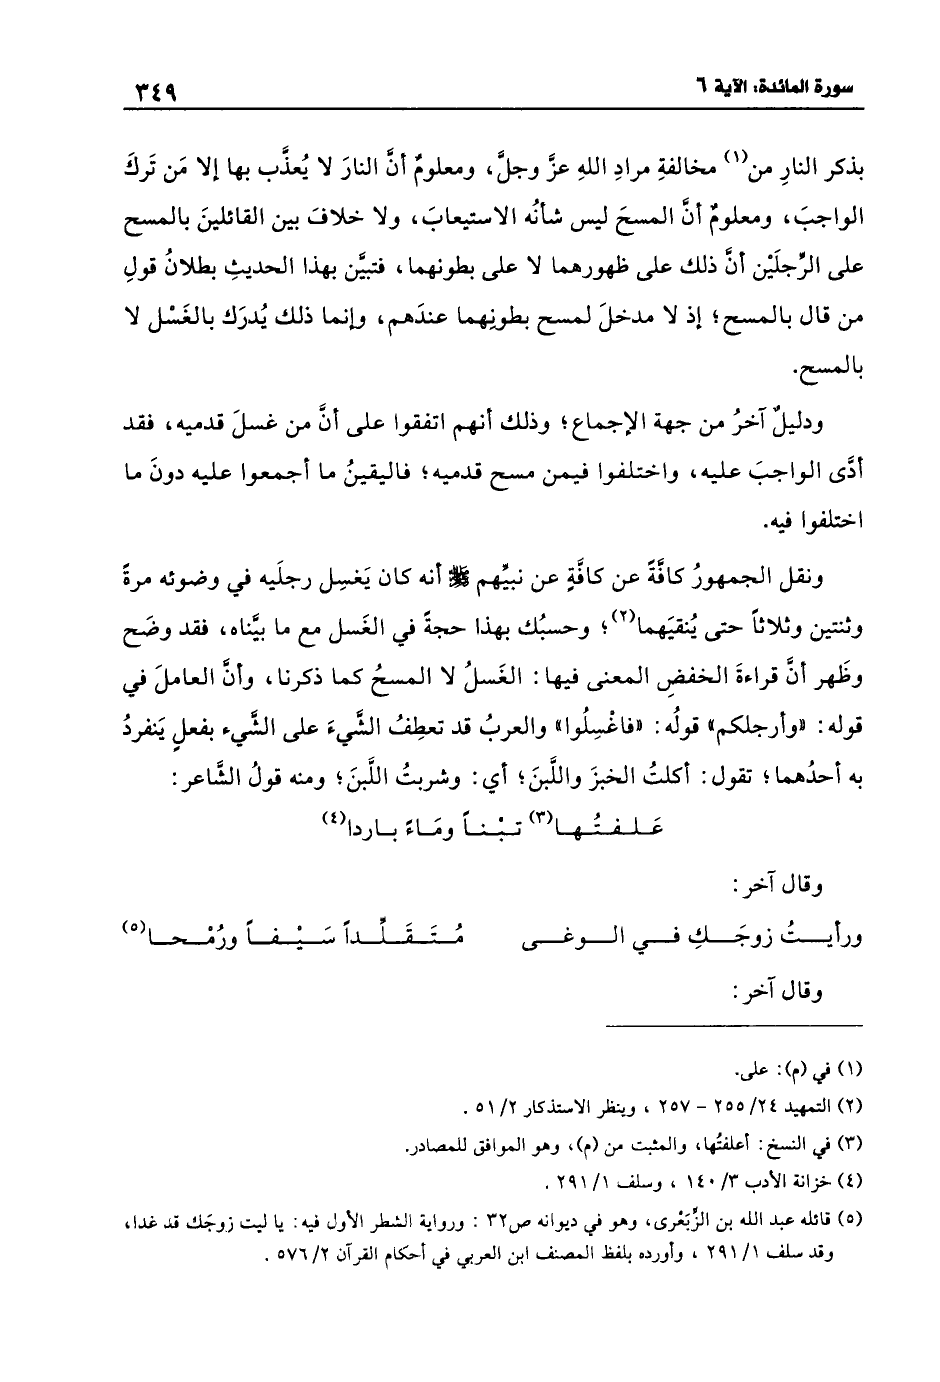 سورة المائدة: الآية ٦ ٣٤٩
بذكر النارِ من(١) مخالفةِ مرادِ اللهِ عزَّ وجلَّ، ومعلومٌ أنَّ النارَ لا يُعذَّب بها إلا مَن تَركَ
الواجبَ، ومعلومٌ أنَّ المسحَ ليس شأنُه الاستيعابَ، ولا خلافَ بين القائلينَ بالمسح
على الرِّجلَيْن أنَّ ذلك على ظهورهما لا على بطونهما، فتبيَّن بهذا الحديثِ بطلانُ قولِ
من قال بالمسح؛ إذ لا مدخلَ لمسح بطونِهما عندَهم، وإنما ذلك يُدرَك بالغَسْل لا
بالمسح.
ودليلٌ آخرُ من جهة الإجماع؛ وذلك أنهم اتفقوا على أنَّ من غسلَ قدميه، فقد
أدَّى الواجبَ عليه، واختلفوا فيمن مسح قدميه؛ فاليقينُ ما أجمعوا عليه دونَ ما
اختلفوا فيه.
ونقل الجمهورُ كافَّةً عن كافَّةٍ عن نبيِّهم ﷺ أنه كان يَغسِل رجلَيه في وضوئه مرةً
وثنتين وثلاثاً حتى يُنقيَهما(٢)؛ وحسبُك بهذا حجةً في الغَسل مع ما بيَّناه، فقد وضَح
وظَهر أنَّ قراءةَ الخفضِ المعنى فيها: الغَسلُ لا المسحُ كما ذكرنا، وأنَّ العاملَ في
قوله: «وأرجلكم» قولُه: «فاغْسِلُوا» والعربُ قد تعطِفُ الشَّيءَ على الشَّيء بفعلٍ يَنفردُ
به أحدُهما؛ تقول: أكلتُ الخبزَ واللَّبنَ؛ أي: وشربتُ اللَّبنَ؛ ومنه قولُ الشَّاعر:
عَلفتُها(٣) تبْناً ومَاءً باردا(٤)
وقال آخر:
ورأيتُ زوجَكِ في الوغى مُتَقَلِّداً سَيْفاً ورُمْحا(٥)
وقال آخر:
(١) في (م): على.
(٢) التمهيد ٢٤/ ٢٥٥ - ٢٥٧ ، وينظر الاستذكار ٢/ ٥١ .
(٣) في النسخ: أعلفتُها، والمثبت من (م)، وهو الموافق للمصادر.
(٤) خزانة الأدب ٣/ ١٤٠ ، وسلف ١/ ٢٩١ .
(٥) قائله عبد الله بن الزِّبَعْرى، وهو في ديوانه ص٣٢ : ورواية الشطر الأول فيه: يا ليت زوجَك قد غدا،
وقد سلف ١/ ٢٩١ ، وأورده بلفظ المصنف ابن العربي في أحكام القرآن ٢/ ٥٧٦ .